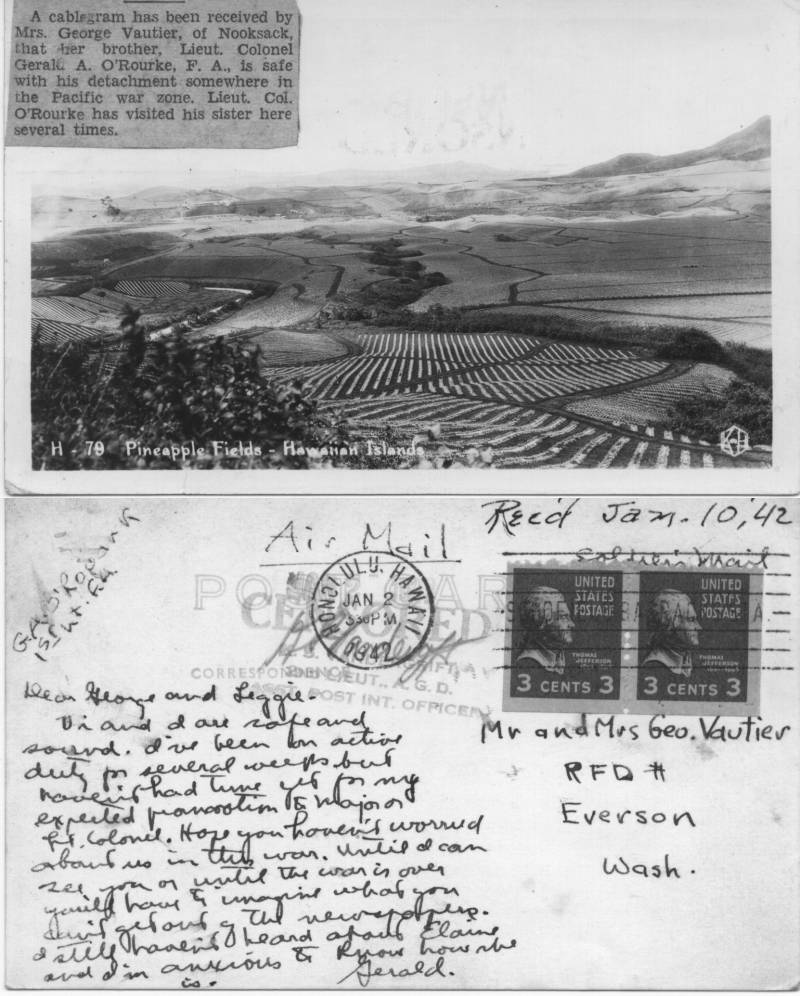 A cablegram has been received by
Mrs. George Vautier, of Nooksack,
that her brother, Lieut. Colonel
Gerald A. O'Rourke, F. A., is safe
with his detachment somewhere in
the Pacific war zone. Lieut. Col.
O'Rourke has visited his sister here
several times.
H - 79 Pineapple Fields - Hawaiian Islands
Rec'd Jan. 10, '42
Air Mail
Soldier's Mail
1st Lt. F.A.
HONOLULU, HAWAII
JAN 2
3 30 PM
1942
CENSORED
LIEUT., A. G. D.
POST INT. OFFICER
UNITED STATES POSTAGE
THOMAS JEFFERSON
3 CENTS 3
UNITED STATES POSTAGE
THOMAS JEFFERSON
3 CENTS 3
Dear George and Leggie.
Vi and I are safe and
sound. I've been on active
duty for several weeks but
haven't had time yet for my
expected promotion to Major or
Lt. Colonel. Hope you haven't worried
about us in this war. Until I can
see you or until the war is over
you'll have to imagine what you
can't get out of the newspapers.
I still haven't heard about Elaine
and I'm anxious to know how she
is. Gerald.
Mr and Mrs Geo. Vautier
RFD #
Everson
Wash.